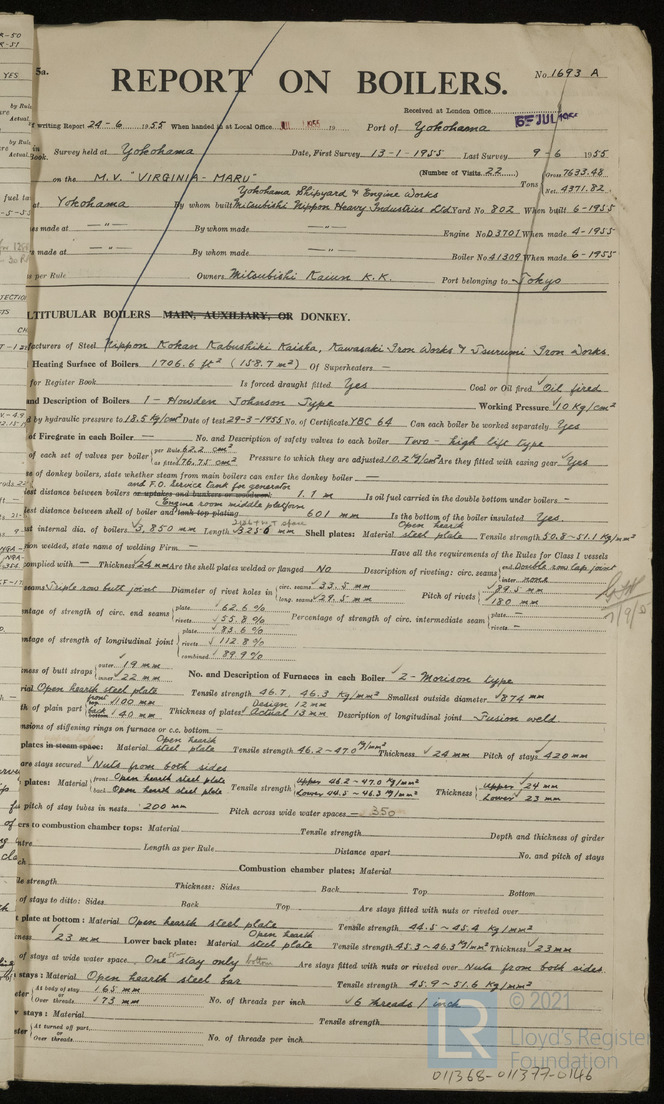 5a.
REPORT ON BOILERS.
No. 1693 A
Received at London Office
5 JUL 1955
writing Report 24-6 1955 When handed in at Local Office 1955 19 Port of Yokohama
Survey held at Yokohama Date, First Survey 13-1-1955 Last Survey 9-6 1955
Book.
on the M.V. "VIRGINIA-MARU" (Number of Visits 22) Tons Gross 7633.48 Net 4371.82
Yokohama Shipyard & Engine Works
at Yokohama By whom built Mitsubishi Nippon Heavy Industries Ltd Yard No. 802 When built 6-1955
es made at —"— By whom made —"— Engine No. D3701 When made 4-1955
made at —"— By whom made —"— Boiler No. 41309 When made 6-1955
as per Rule Owners Mitsubishi Kaiun K.K. Port belonging to Tokyo
LTITUBULAR BOILERS MAIN, AUXILIARY, OR DONKEY.
facturers of Steel Nippon Kokan Kabushiki Kaisha, Kawasaki Iron Works & Tsurumi Iron Works.
Heating Surface of Boilers 1706.6 ft² (158.7 m²) Of Superheaters —
for Register Book Is forced draught fitted Yes Coal or Oil fired Oil fired
and Description of Boilers 1 - Howden Johnson Type Working Pressure 10 Kg/cm²
d by hydraulic pressure to 18.5 Kg/cm² Date of test 29-3-1955 No. of Certificate YBC 64 Can each boiler be worked separately Yes
of Firegrate in each Boiler — No. and Description of safety valves to each boiler Two - high lift type
of each set of valves per boiler per Rule 62.2 cm² as fitted 76.75 cm² Pressure to which they are adjusted 10.2 Kg/cm² Are they fitted with easing gear Yes
se of donkey boilers, state whether steam from main boilers can enter the donkey boiler —
and F.O. Service tank for generator
lest distance between boilers or uptakes and bunkers or woodwork 1.1 m Is oil fuel carried in the double bottom under boilers —
Engine room middle platform
lest distance between shell of boiler and tank top plating 601 mm Is the bottom of the boiler insulated Yes.
est internal dia. of boilers 3,850 mm Length 3256 mm Shell plates: Material Open hearth steel plate Tensile strength 50.8-51.1 Kg/mm²
sion welded, state name of welding Firm — Have all the requirements of the Rules for Class I vessels
complied with — Thickness 24 mm Are the shell plates welded or flanged No Description of riveting: circ. seams end Double row lap joint inter. none
seams Triple row butt joint Diameter of rivet holes in circ. seams 33.5 mm long. seams 29.5 mm Pitch of rivets 89.5 mm 180 mm
entage of strength of circ. end seams plate 62.6 % rivets 55.8 % Percentage of strength of circ. intermediate seam plate — rivets —
entage of strength of longitudinal joint plate 83.6 % rivets 112.8 % combined 89.9 %
ness of butt straps outer 19 mm inner 22 mm No. and Description of Furnaces in each Boiler 2 - Morison type
rial Open hearth steel plate Tensile strength 46.7 46.3 Kg/mm² Smallest outside diameter 874 mm
th of plain part front top 100 mm back bottom 140 mm Thickness of plates Design 12 mm Actual 13 mm Description of longitudinal joint Fusion weld.
nsions of stiffening rings on furnace or c.c. bottom —
plates in steam space: Material Open hearth steel plate Tensile strength 46.2-47.0 Kg/mm² Thickness 24 mm Pitch of stays 420 mm
are stays secured Nuts from both sides
plates: Material front Open hearth steel plate back Open hearth steel plate Tensile strength Upper 46.2-47.0 Kg/mm² Lower 44.5-46.3 Kg/mm² Thickness Upper 24 mm Lower 23 mm
pitch of stay tubes in nests 200 mm Pitch across wide water spaces — 350
ers to combustion chamber tops: Material Tensile strength Depth and thickness of girder
entre Length as per Rule Distance apart No. and pitch of stays
ch Combustion chamber plates: Material
ile strength Thickness: Sides Back Top Bottom
of stays to ditto: Sides Back Top Are stays fitted with nuts or riveted over
t plate at bottom: Material Open hearth steel plate Tensile strength 44.5-45.4 Kg/mm²
ness 23 mm Lower back plate: Material Open hearth steel plate Tensile strength 45.3-46.3 Kg/mm² Thickness 23 mm
of stays at wide water space One stay only bottom Are stays fitted with nuts or riveted over Nuts from both sides
stays: Material Open hearth steel bar Tensile strength 45.9-51.6 Kg/mm²
eter At body of stay 165 mm or Over threads 73 mm No. of threads per inch 6 threads / inch
stays: Material Tensile strength
ster At turned off part or Over threads No. of threads per inch
© 2021
LR
Lloyd's Register
Foundation
011368-011377-0146